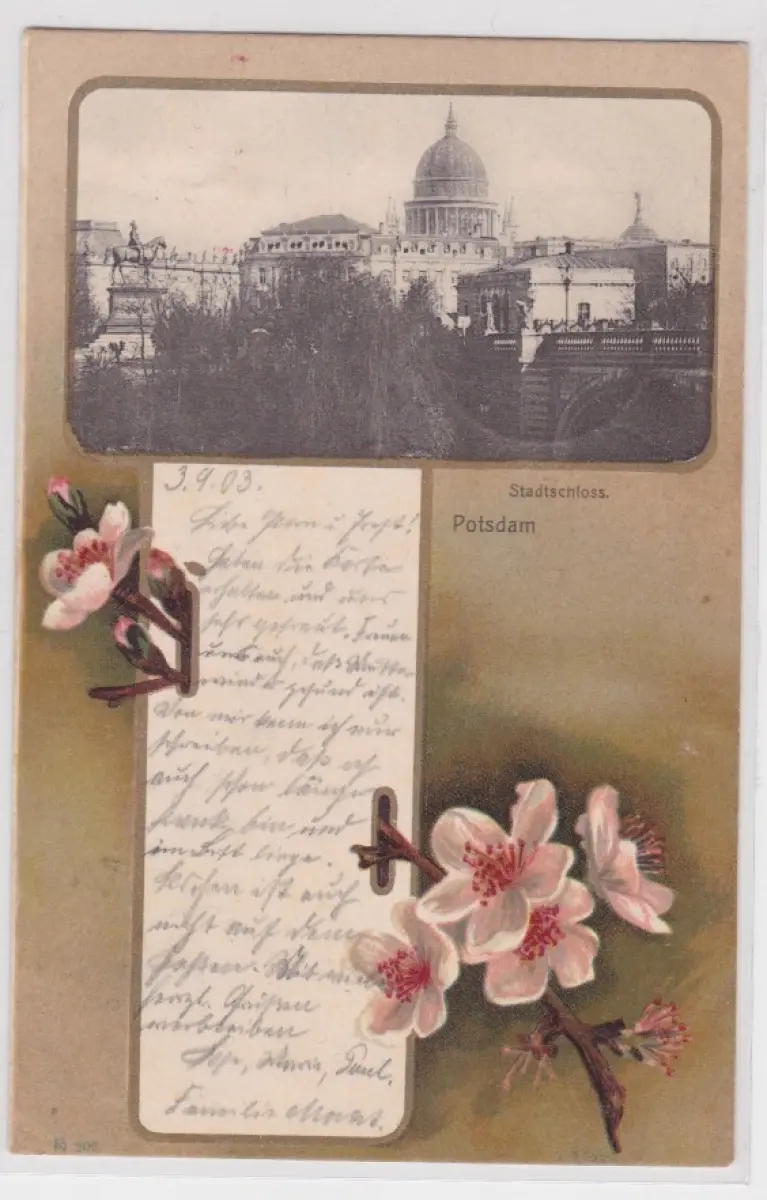 Stadtschloss.
Potsdam
3.9.03.
Liebe
haben die Karte
erhalten und uns
sehr gefreut. Freuen
uns auch, daß Mutter
wieder gesund ist.
Von mir kann ich nur
schreiben, daß ich
auch schon länger
krank bin und
im Bett liege.
ist auch
nicht auf dem
Posten. Mit viel
herzl. Grüßen
verbleiben
Paul.
Familie